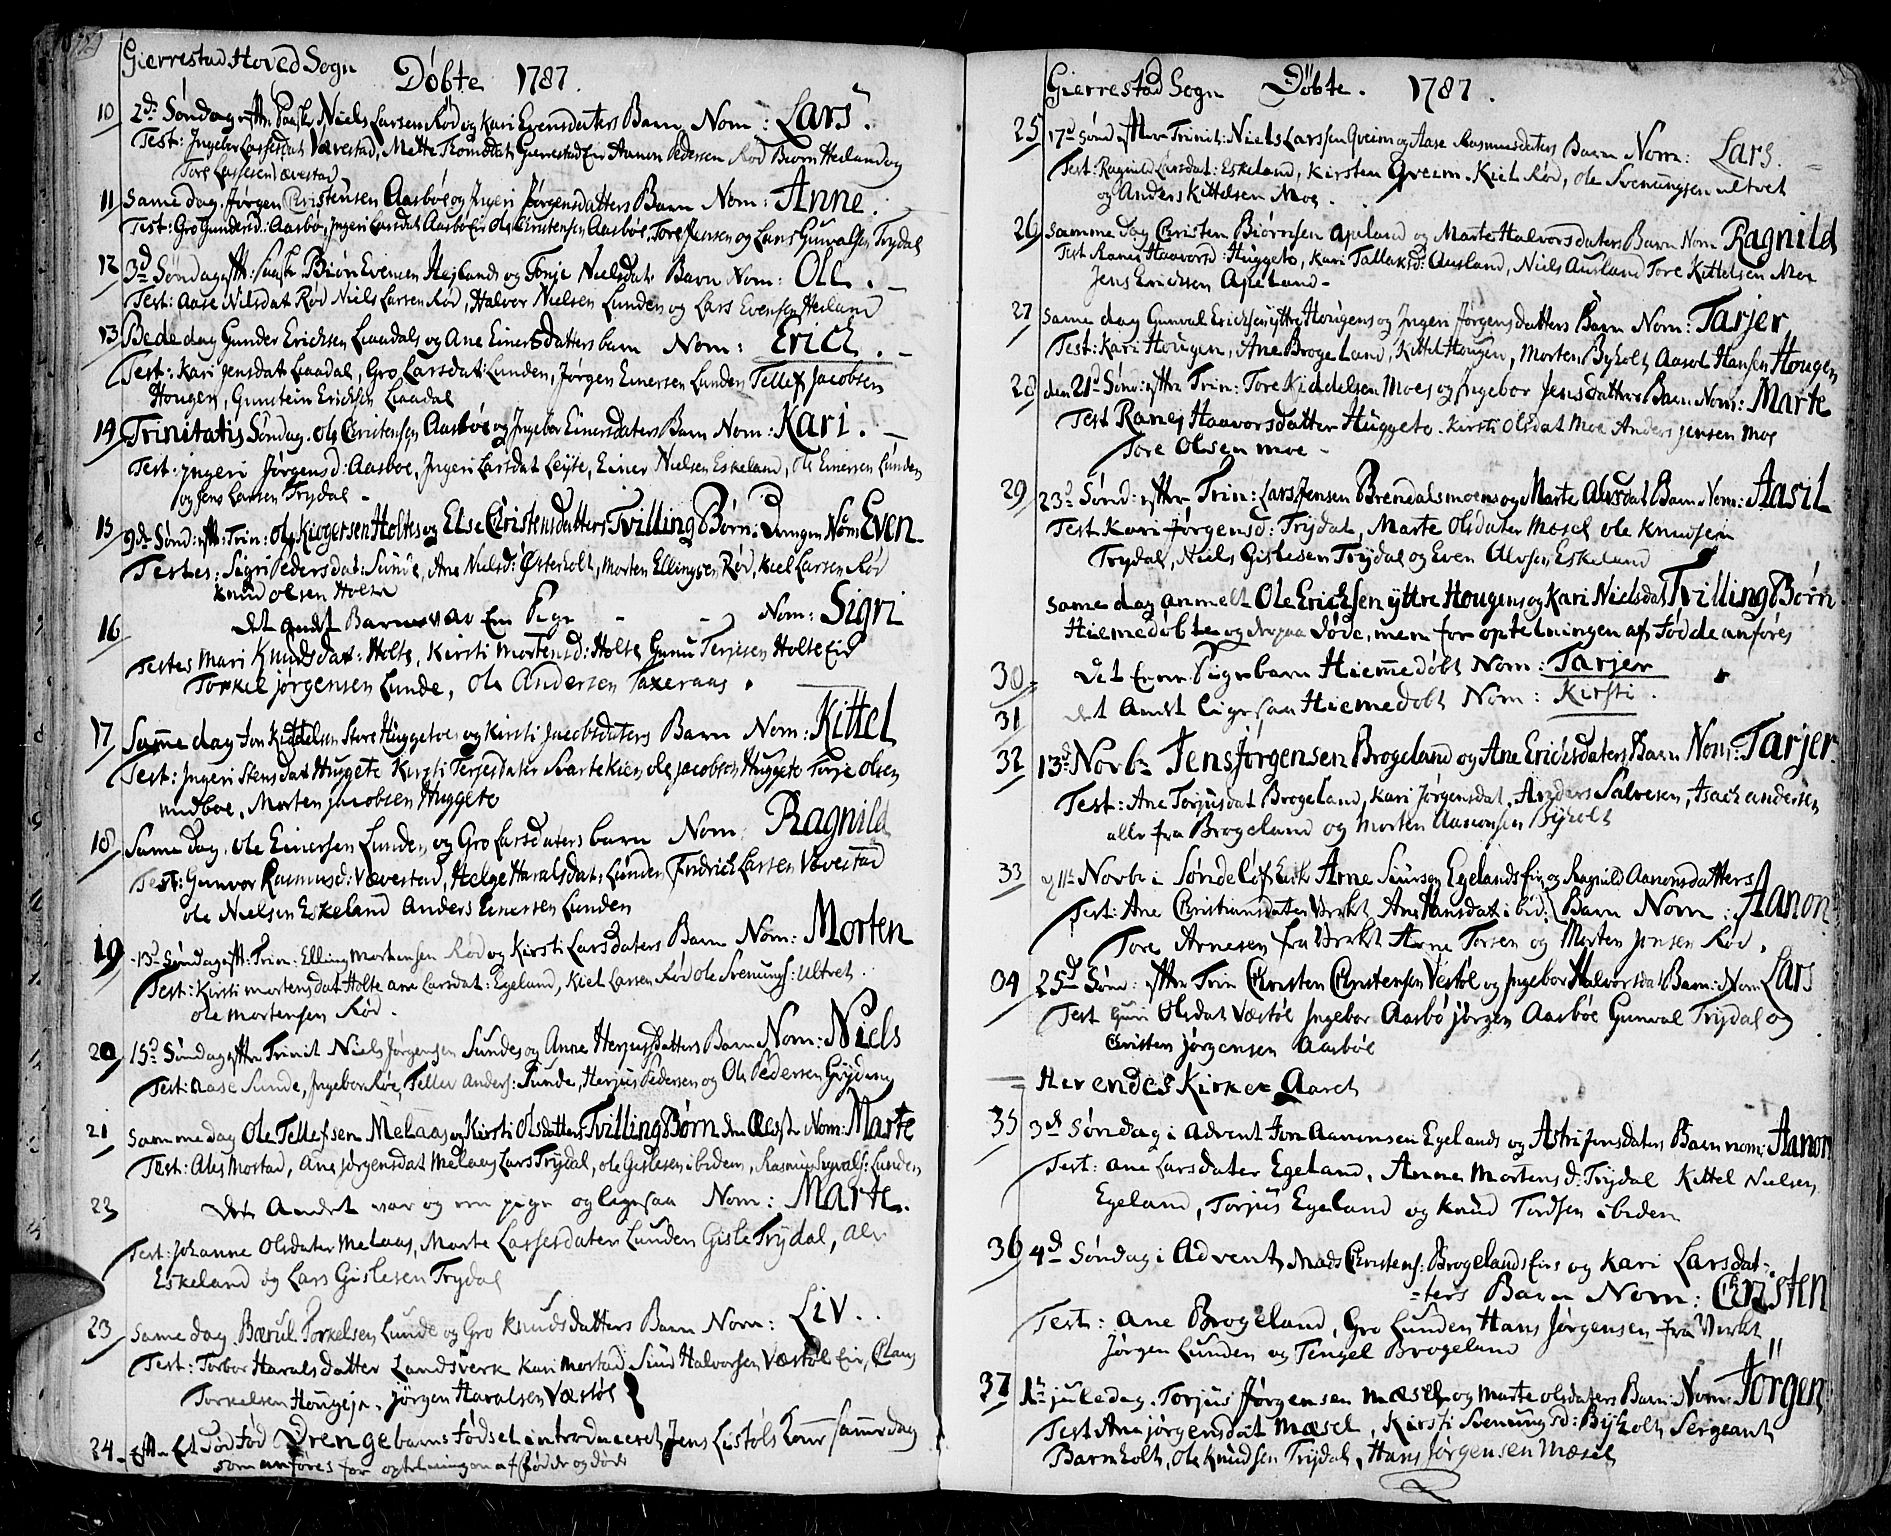 Gierrestad Hoved Sogn Døbte 1787.
10 2de Søndag efter Paaske Niels Larsen Rød og Kari Evensdaters Barn Nom: Lars.
Test: Ingebor Lassesdat Vævestad, Mette Thomædat Gierrestad Eir Aanon Pedersen Rød Biørn Heiland og
Tore Lassesen Vævestad
11 Samme dag. Jørgen Christensen Aasbøe og Ingeri Jørgensdatters Barn Nom: Anne.
Test: Gro Gundersd: Aasbø, Ingeri Larsdat Aasbø Eir Ole Christensen Aasbøe, Tore Jensen og Lars Gunvalsen Trydal
12 3de Søndag eft: Paaske Biøn Evensen Heilands og Tonje Nielsdat Barn Nom: Oll.
Test: Aase Nilsdat Rød Niels Larsen Rød, Halvor Nielsen Lunden og Lars Evensen Heiland
13 Bededag Gunder Erichsen Liaadals og Ane Einersdatters barn Nom: Erich.
Test: Kari Jensdat Liaadal, Gro Larsdat: Lunden, Jørgen Einersen Lunden Tellef Jacobsen
Hougen, Gunstein Erichsen Liaadal
14 Trinitatis Søndag. Ole Christensen Aasbøe og Ingebor Einersdaters Barn Nom: Kari.
Test: Ingeri Jørgensd: Aasboe, Ingeri Larsdat Leyte, Einer Nielsen Eskeland, Ole Einersen Lunden
og Jens Larsen Trydal
15 9de Sønd: eft: Trin: Ole Kiogersen Holtes og Else Christensdatters Tvilling Børn: Drengen Nom Even
Testes: Sigri Pedersdat: Sunde, Ane Nielsd: Østerholt, Morten Ellingsen Rød, Kiel Larsen Rød
Knud Olsen Holte
16 det andet Barn var En Pige Nom: Sigri
Testes Mari Knudsdat: Holte, Kirsti Mortensd: Holte Gunu Terjesen Holte Eir
Torkel Jørgensen Lunde, Ole Andersen Taxeraas.
17 Samme dag Jon Kiddelsen Store Huggetoes og Kirsti Jacobsdaters Barn Nom: Kittel
Test: Ingeri Stensdat Huggete Kirsti Terjesdater Svartekien Ole Jacobsen Huggete Torje Olsen
midboe, Morten Jacobsen Huggete
18 Same dag. Ole Einersen Lunden og Gro Larsdaters barn Nom: Ragnild
Test: Gunvor Rasmusd: Vævestad, Helge Haralsdat: Lunden Fridrich Larsen Vævestad
Ole Nielsen Eskeland Anders Einersen Lunden
19 13de Søndag eft: Trin: Elling Mortensen Rød og Kirsti Larsdaters Barn Nom: Morten
Test: Kirsti Mortensdat Holte Ane Larsdat: Egeland, Kiel Larsen Rød Ole Svenungs: Ultvet.
Ole Mortensen Rød.
20 15de Søndag efter Trinit Niels Jørgensen Sundes og Anne Herjusdatters Barn Nom: Niels
Test: Aase Sunde, Ingebor Røe, Tellef Anders: Sunde, Herjus Pedersen og Ole Pedersen Gryding
21 Sammedag Ole Tellefsen Melaas og Kirsti Olsdatters Tvilling Børn den Ælste Nom: Marte
Test: Ales Mostad, Ane Jørgensdat Melaas Lars Trydal, Ole Gislesen ibidem, Rasmus Ingvals: Lunden
22 Det Andet var og een pige og ligesaa Nom: Marte.
Test: Johanne Olsdater Melaas, Marte Lassesdater Lunden Gisle Trydal, Alv
Eskeland og Lars Gislesen Trydal
23 Same dag. Børul Torkelsen Lunde og Gro Knudsdatters Barn Nom: Liv.
Test: Torbor Haralsdatter Landsverk Kari Mostad Siur Halvorsen Væstøl Eir, Olaus
Torkelsen Hougeja. Jørgen Haralsen Væstøl
24. Efter Et dødfød Drengebarns fødsel introduceret Jens Listøls Kone Samme dag
som anføres for optelningen af fødde og døde
Gierrestad Sogn Døbte. 1787.
25 17de Sønd efter Trinit: Niels Larssen Qveim og Aase Rasmusdaters Barn Nom: Lars.
Test: Ragnild Larsdat: Eskeland, Kirsten Qveim. Kiel Rød, Ole Svenungsen Ultvet
og Anders Kittelsen Moe.
26 Samme dag Christen Biørnsen Apeland og Marte Halvorsdaters Barn Nom Ragnild
Test Ranei Haavorsd: Huggeto, Kari Tallaksd: Ausland, Niels Ausland Tore Kittelsen Moe
Jens Ericksen Apeland.
27 Same dag Gunval Erichsen yttre Hougens og Ingeri Jørgensdatters Barn Nom: Tarjer
Test: Kari Hougen, Ane Brogeland, Kittel Hougen, Morten Byholt Aasol Hansen Hougen
28 den 21de Sønd: efter Trin: Tore Kiddelsen Moes og Ingebor Jensdatters Barn Nom: Marte
Test Ranei Haavorsdatter Huggeto. Kirsti Olsdat Moe Anders Jensen Moe
Tore Olsen moe
29 23de Sønd: efter Trin: Lars Jensen Brendalsmoens og Marte Alvsdat Barn Nom: Aasil
Test Kari Jørgensd: Trydal, Marte Olsdater Mosel Ole Knudsen
Trydal, Niels Gislesen Trydal og Even Alvsen Eskeland
same dag anmelt Ole Erichsen yttre Hougens og Kari Nielsdat Tvilling Børn
Hiemedøbte og derpaa døde, men for optelningen af fødde anføres
30 det Eene Pigebarn Hiemedøbt Nom: Tarjer
31 det Andt ligesaa Hiemedøbt Nom: Kirsti.
32 13de Novbr Jens Jørgensen Brogeland og Ane Erichsdaters Barn Nom: Tarjer.
Test: Ane Torjusdat Brogeland, Kari Jørgensdat, Anders Salvesen, Isach andersen
alle fra Brogeland og Morten Aanonsen Byholt
33 11te Novbr i Søndeløf Kirk Arne Siursen Egelands Eir og Ragnild Aanonsdatters
Test: Ane Christiansdater Verket Ane Hansdat ibid: Barn Nom: Aanon
Tore Arnesen fra Verket Arne Torsen og Morten Jensen Rød.
34 25de Sønd: efter Trin Christen Christensen Vestøl og Ingebor Halvorsdat Barn: Nom Lars
Test Guri Olsdat Væstøl Ingebor Aasbø Jørgen Aasbøe Gunval Trydal og
Christen Jørgensen Aasbøe
Her endes Kirke Aaret
35 3de Søndag i Advent Jon Aanonsen Egelands og Astri Jensdaters Barn nom: Aanon
Test: Ane Larsdater Egeland, Anne Mortensd: Trydal Kittel Nielsen
Egeland, Torjus Egeland og Knud Tordsen ibidem
36 4de Søndag i Advent, Mads Christens: Brogelands Eirs og Kari Larsdat-
=ters Barn Nom: Christen
Test: Ane Brogeland, Gro Lunden Hans Jørgensen fra Verket
Jørgen Lunden og Tengel Brogeland
37 1te juledag. Torjus Jørgensen Mæsel og Marte Olsdaters Barn: Nom: Jørgen
Test Ane Jørgensdat Mæsel, Kirsti Svenungsd: Byholt Sergeant
Barnholt, Ole Knudsen Trydal, Hans Jørgensen Mæsel